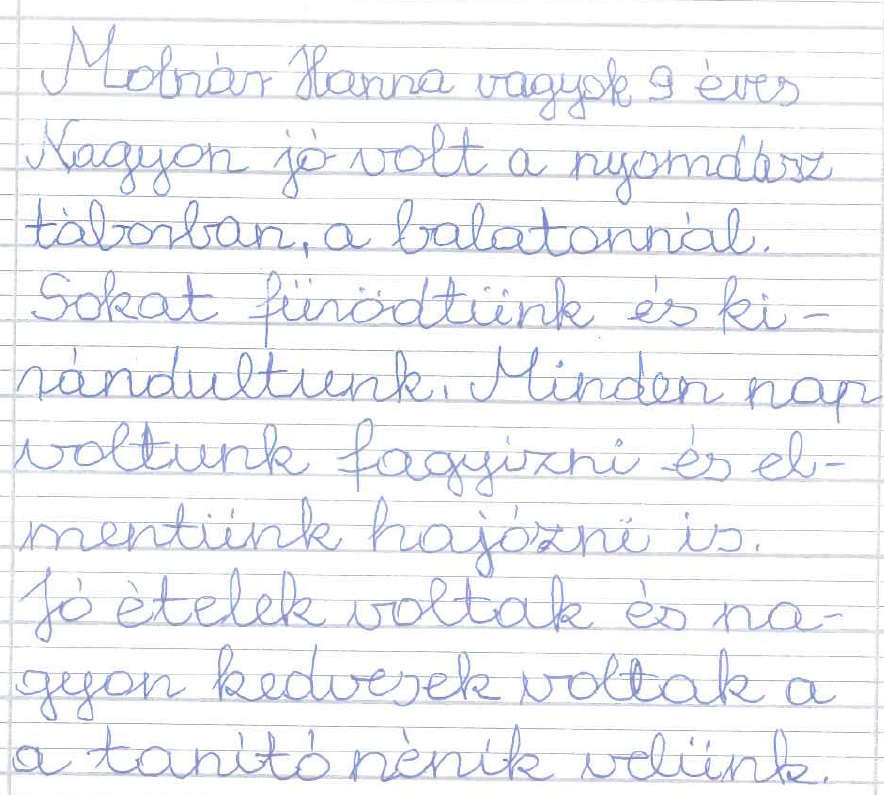 Molnár Hanna vagyok 9 éves
Nagyon jó volt a nyomdász
táborban, a balatonnál.
Sokat fürödtünk és ki-
rándultunk. Minden nap
voltunk fagyizni és el-
mentünk hajózni is.
Jó ételek voltak és na-
gyon kedvesek voltak a
a tanító nénik velünk.